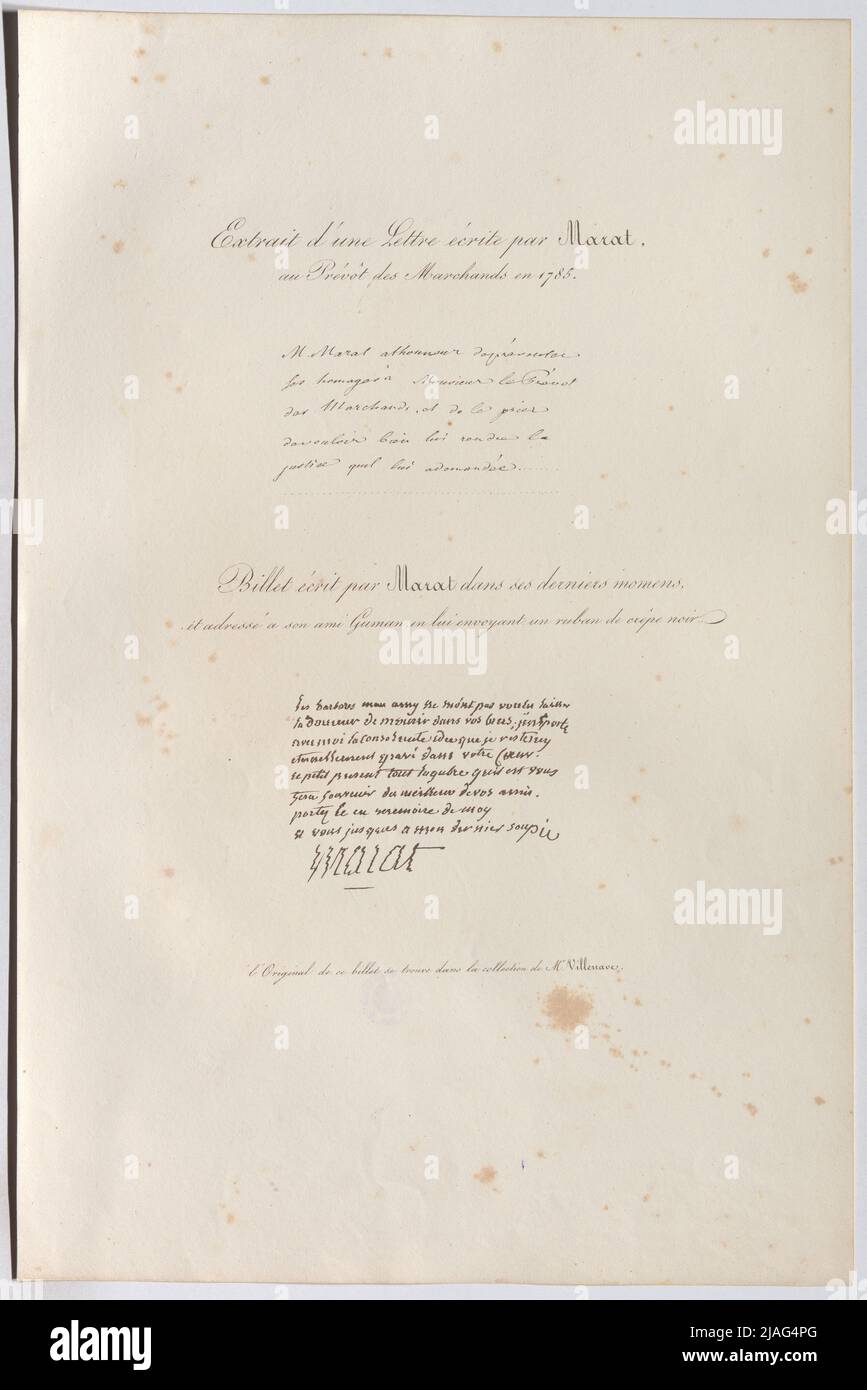 Extrait d'une Lettre écrite par Marat.
au Prévôt des Marchands en 1785.
M Marat alhonneur deprésenter
ses homages à Monsieur le Prévot
des Marchands, et de le prier
devouloir bien lui rendre la
justice quil lui ademandée.......
Billet écrit par Marat dans ses derniers momens,
et adressé à son ami Guman en lui envoyant un ruban de crêpe noir.
les barbares mon amy ne mont pas voulu laisser
la douceur de mourir dans vos bras; j'emporte
avec moi la consolante idée que je resterey
eternellement gravé dans votre Coeur.
ce petit present tout lugubre quil est vous
fera souvenir du meilleur de vos amis.
portez le en memoire de moy
a vous jusques a mon dernier soupir
Marat
l'Original de ce billet se trouve dans la collection de Mr Villenave.
alamy
alamy
alamy
alamy
Image ID: 2JAG4PG
www.alamy.com